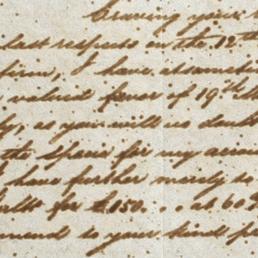 Craving your
last respects on the 12th
firm, I have
valued favor of 19th
as you will no doubt
the Spain for my
have further merely to
for £150 . . at 60
to your kind